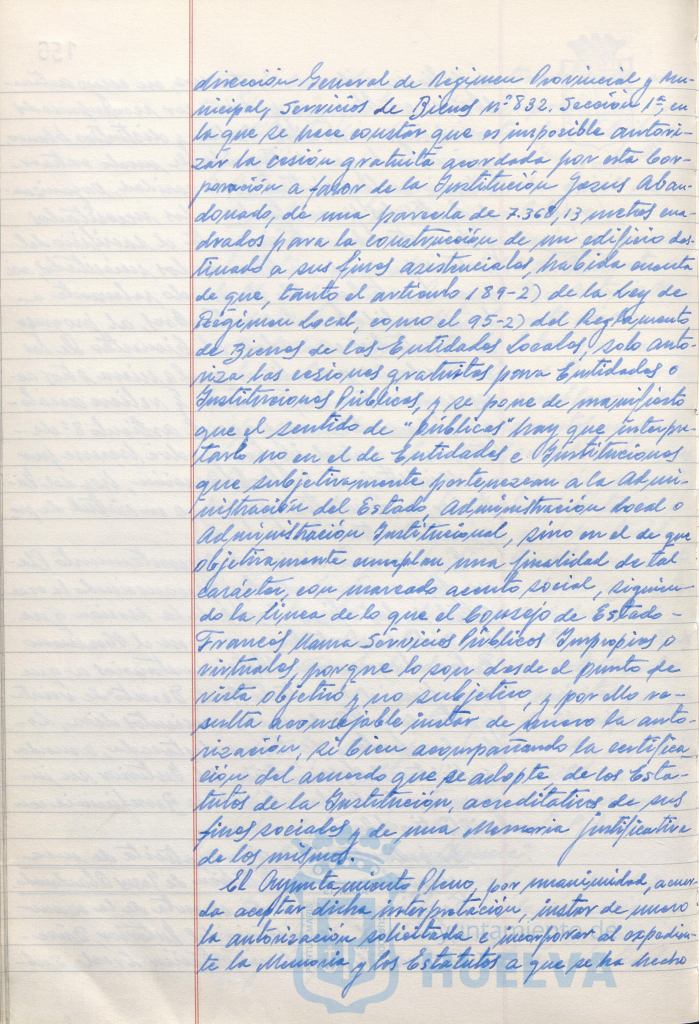 dirección General de Régimen Provincial y Mu-
nicipal, Servicios de Bienes nº 832. Sección 1ª, en
la que se hace constar que es imposible autori-
zar la cesión gratuita acordada por esta Cor-
poración a favor de la Institución Jesús Aban-
donado, de una parcela de 7.368,13 metros cua-
drados para la construcción de un edificio des-
tinado a sus fines asistenciales, habida cuenta
de que, tanto el artículo 189-2) de la Ley de
Régimen Local, como el 95-2) del Reglamento
de Bienes de las Entidades Locales, solo auto-
riza las cesiones gratuitas para Entidades o
Instituciones Públicas, y se pone de manifiesto
que el sentido de "públicas" hay que interpre-
tarlo no en el de Entidades e Instituciones
que subjetivamente pertenezcan a la Admi-
nistración del Estado, Administración Local o
Administración Institucional, sino en el de que
objetivamente cumplan una finalidad de tal
carácter, con marcado acento social, siguien-
do la línea de lo que el Consejo de Estado-
Francés llama Servicios Públicos Impropios o
virtuales, porque lo son desde el punto de
vista objetivo y no subjetivo, y por ello re-
sulta aconsejable instar de nuevo la auto-
rización, si bien acompañando la certifica-
ción del acuerdo que se adopte, de los Esta-
tutos de la Institución, acreditativos de sus
fines sociales y de una Memoria justificativa
de los mismos.
El Ayuntamiento Pleno, por unanimidad, acuer-
da aceptar dicha interpretación, instar de nuevo
la autorización solicitada e incorporar al expedien-
te la Memoria y los Estatutos a que se ha hecho
Ayuntamiento de
HUELVA